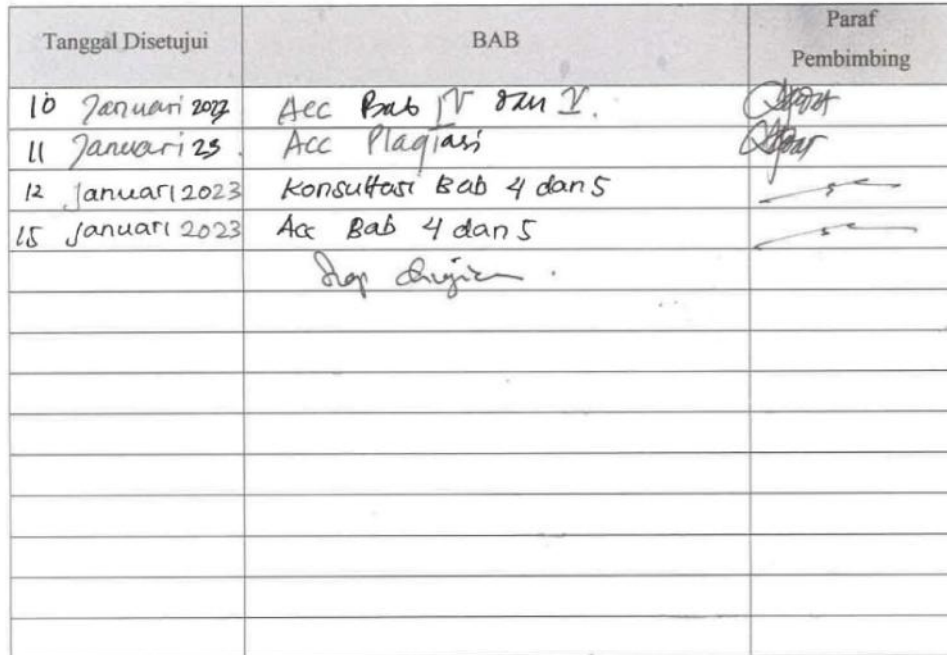 Tanggal Disetujui BAB Paraf
Pembimbing
10 Januari 2023 Acc Bab IV dan V.
11 Januari 23. Acc Plagiasi
12 Januari 2023 Konsultasi Bab 4 dan 5
15 Januari 2023 Acc Bab 4 dan 5